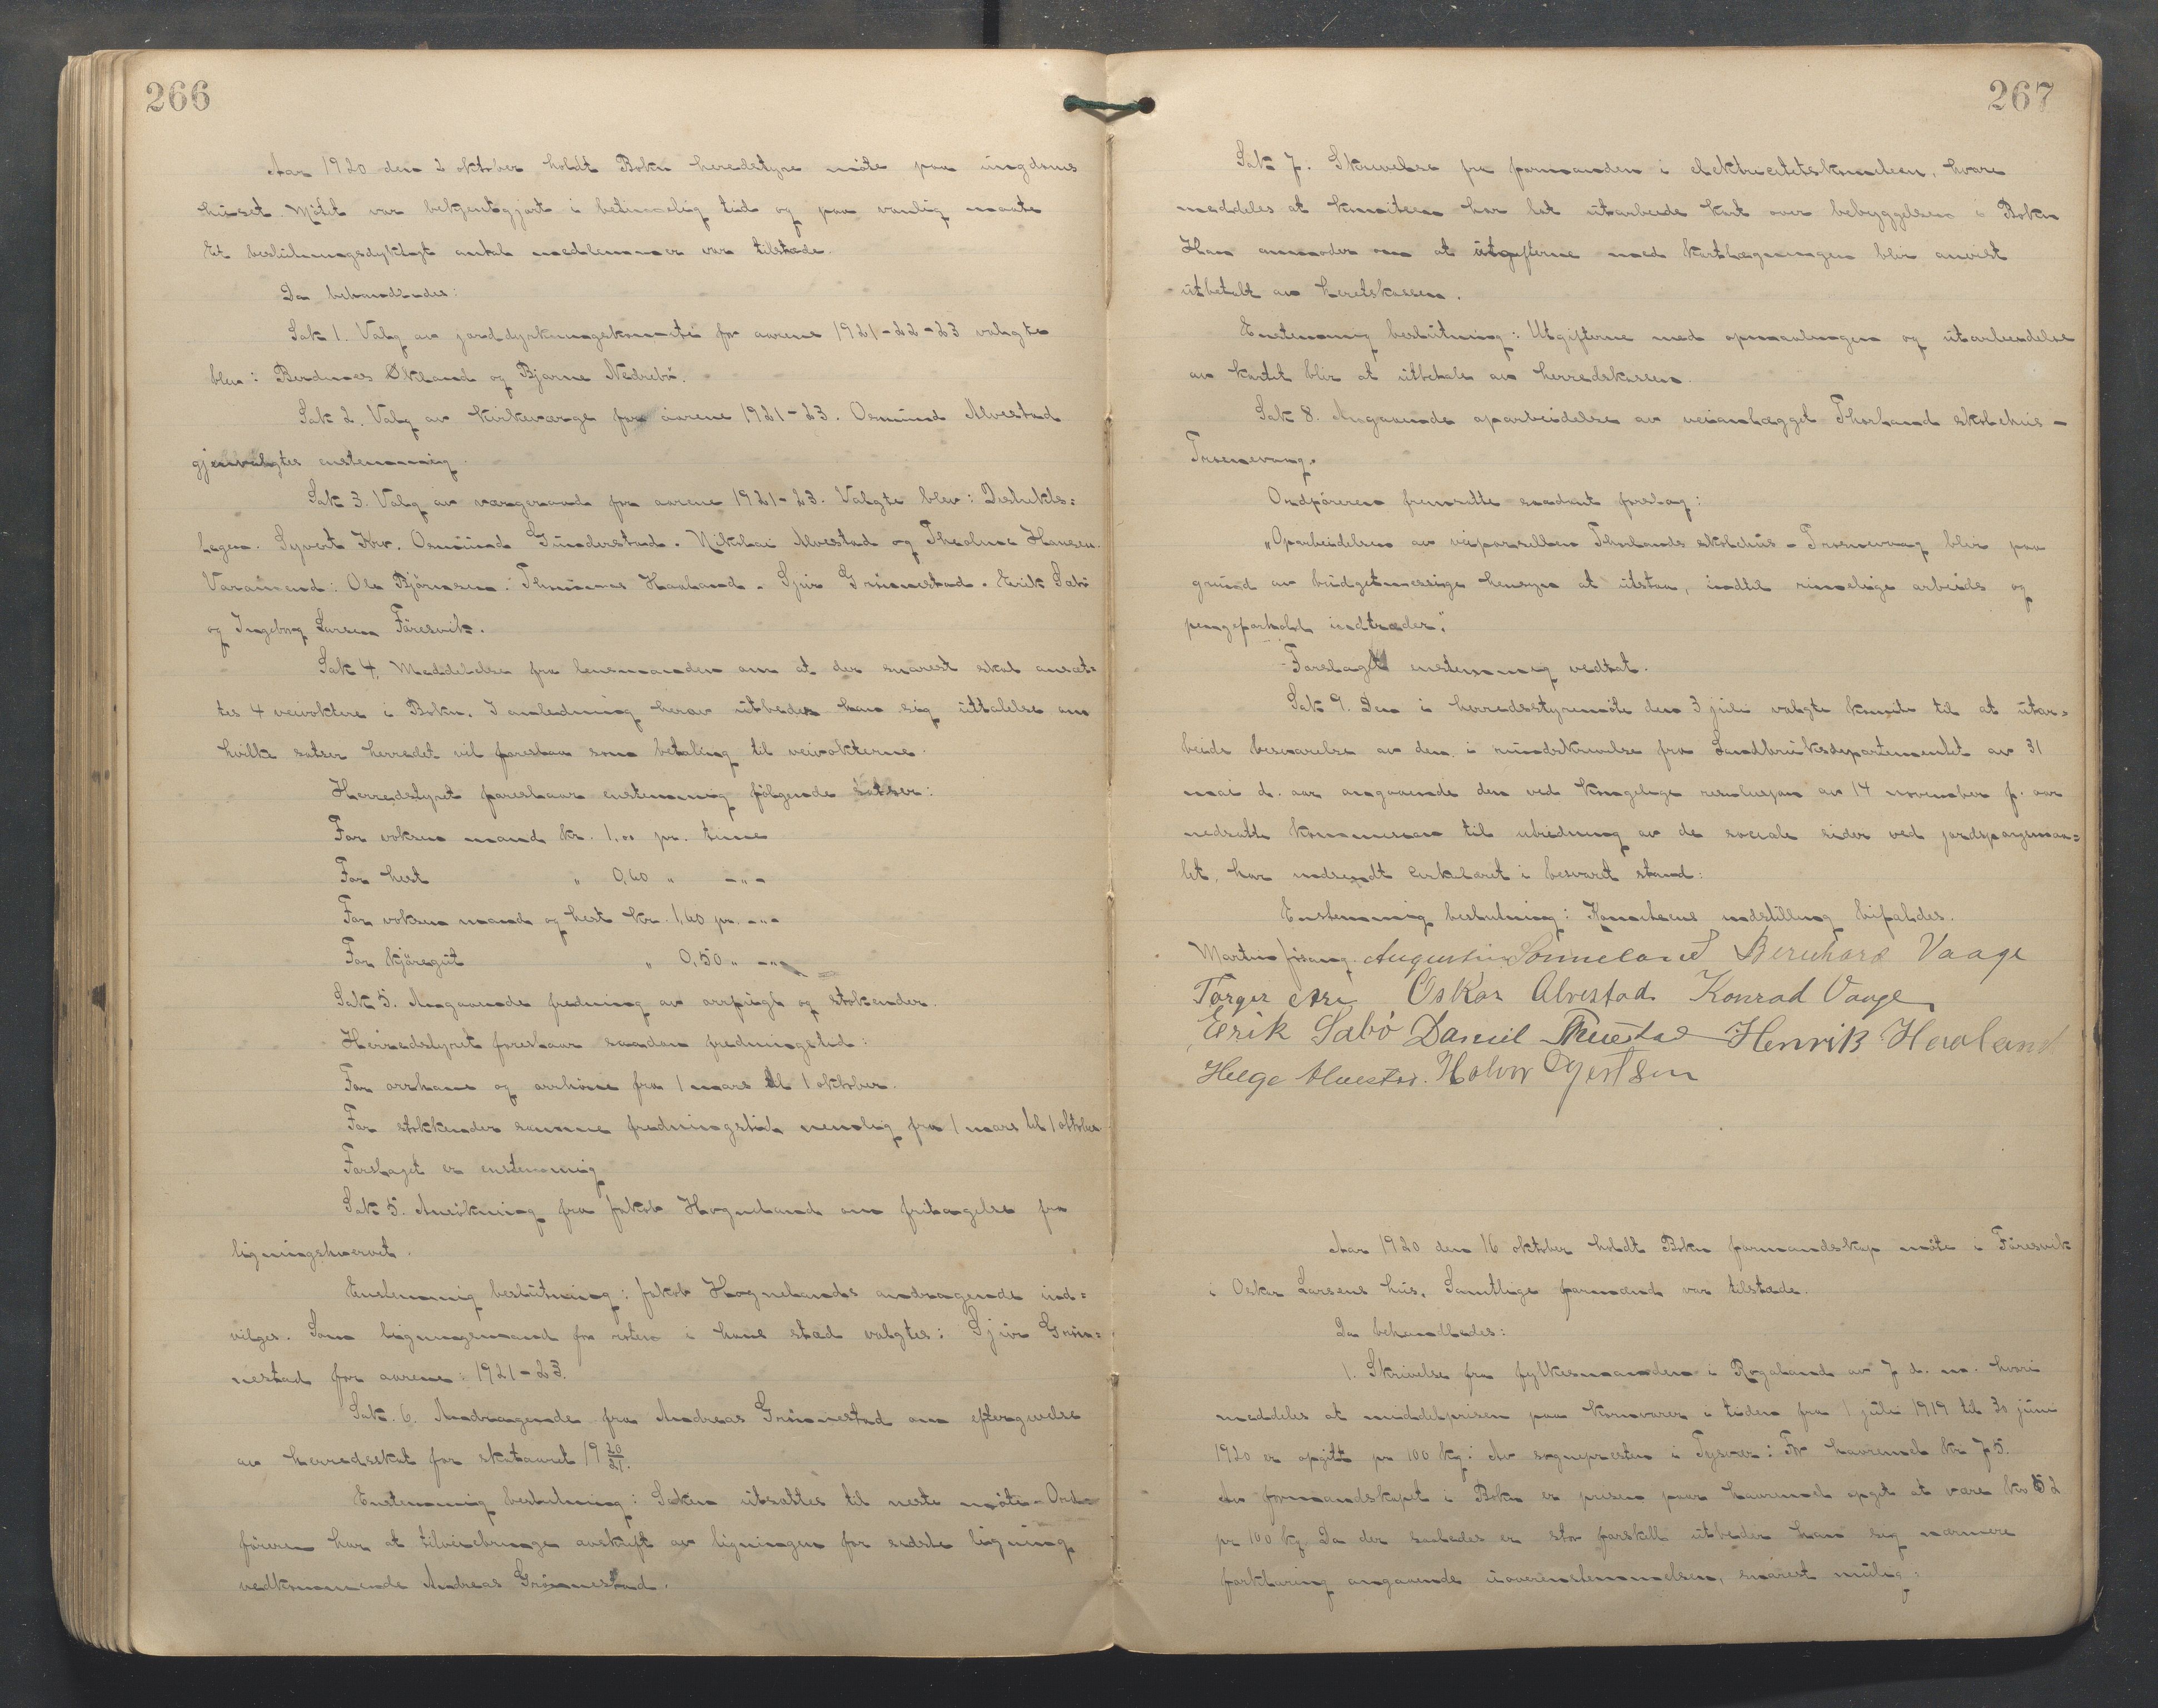 266
Aar 1920 den 2 oktober holdt Bokn heredstyre møte paa ungdoms
huset. Møtet var bekjentgjort i betimelig tid og paa vanlig maate
Et beslutningsdyktigt antal medlemmer var tilstede.
Da behandledes:
Sak 1. Valg av jorddyrkningskomite for aarene 1921-22-23 valgte
blev: Berdines Økland og Bjarne Nedrebø.
Sak 2. Valg av kirkeværge for aarene 1921-23. Osmund Alvestad
gjenvalgtes enstemmig.
Sak 3. Valg av vergeraad for aarene 1921-23. Valgte blev: Distrikts=
lægen. Syvert Krv. Osmund Gunderstad. Nikolai Alvestad og Theoline Hansen.
Varamend: Ole Bjørnsen. Thomas Haaland. Sjur Grønnestad. Erik Sabø
og Ingeborg Larsen Føresvik.
Sak 4. Meddelelse fra lensmanden om at der snarest skal ansæt=
tes 4 veivoktere i Bokn. I anledning herav utbeder han sig uttalelse om
hvilke satser herredet vil foreslaa som betaling til veivokterne.
Herredstyret foreslaar enstemmig følgende satser:
For voksen mand kr. 1,00 pr. time
For hest " 0,60 " -"-
For voksen mand og hest kr. 1,60 pr. -"-
For kjøregut " 0,50 " -"-
Sak 5. Angaaende fredning av orrfugl og stokender.
Herredstyret foreslaar saadan fredningstid:
For orrhane og orrhøne fra 1 mars til 1 oktober.
For stokkender samme fredningstid nemlig fra 1 mars til 1 oktober
Forslaget er enstemmig
Sak 5. Ansøkning fra Jakob Hognaland om fritagelse fra
ligningshvervet.
Enstemmig beslutning: Jakob Hognelands andragende ind=
vilges. Som ligningsmand for roten i hans sted valgtes: Sjur Grøn=
nestad for aarene: 1921-23.
Sak. 6. Andragende fra Andreas Grønnestad om eftergivelse
av herredsskat for skataaret 19 20/21.
Enstemmig beslutning: Saken utsættes til neste møte. Ord=
føreren har at tilveiebringe avskrift av ligningen for sidste ligning
vedkommende Andreas Grønnestad.
267
Sak 7. Skrivelse fra formanden i elektricitetskomiteen, hvori
meddeles at komiteen har lat utarbeide kart over bebyggelsen i Bokn
Han anmoder om at utgifterne med kartlægningen blir anvist
utbetalt av heretskassen.
Enstemmig beslutning: Utgifterne med opmaalingen og utarbeidelse
av kartet blir at utbetale av herredskassen.
Sak 8. Angaaende oparbeidelse av veianlægget Thorland skolehus -
Trosnevaag.
Ordføreren fremsatte saadant forslag:
"Oparbeidelsen av veiparsellen Thorlands skolehus - Trosnevaag blir paa
grund av budgetmessige hensyn at utstaa, indtil rimelige arbeids og
pengeforhold indtræder."
Forslaget enstemmig vedtat.
Sak 9. Den i herredsstyremøte den 3 juli valgte komite til at utar=
beide besvarelse av den i rundskrivelse fra Landbruksdepartementet av 31
mai d. aar angaaende den ved kongelige resolusjon av 14 november f. aar
nedsatte kommission til utredning av de sociale sider ved jordspørsmaa=
let, har indsendt cirkulæret i besvaret stand:
Enstemmig beslutning: Komiteens indstilling bifaldes.
Martin Jøsang. Augustin Sønneland Bernhard Vaage
Torger Are Oskar Alvestad Konrad Vaage
Erik Sabø Daniel Henrik Haaland
Helge Alvestad. Halvor Gjertsen
Aar 1920 den 16 oktober holdt Bokn formandskap møte i Føresvik
i Oskar Larsens hus. Samtlige formænd var tilstede.
Da behandledes:
1. Skrivelse fra fylkesmanden i Rogaland av 7 d. m. hvori
meddeles at middelprisen paa kornvarer i tiden fra 1 juli 1919 til 30 juni
1920 er opgitt pr 100 kg: Av sognepresten i Tysvær: For havremel kr 75.
Av formandskapet i Bokn er prisen paa havremel opgit at være kr 52
pr 100 kg. Da der saaledes er stor forskell utbeder han sig nærmere
forklaring angaaende uoverenstemmelsen, snarest mulig.